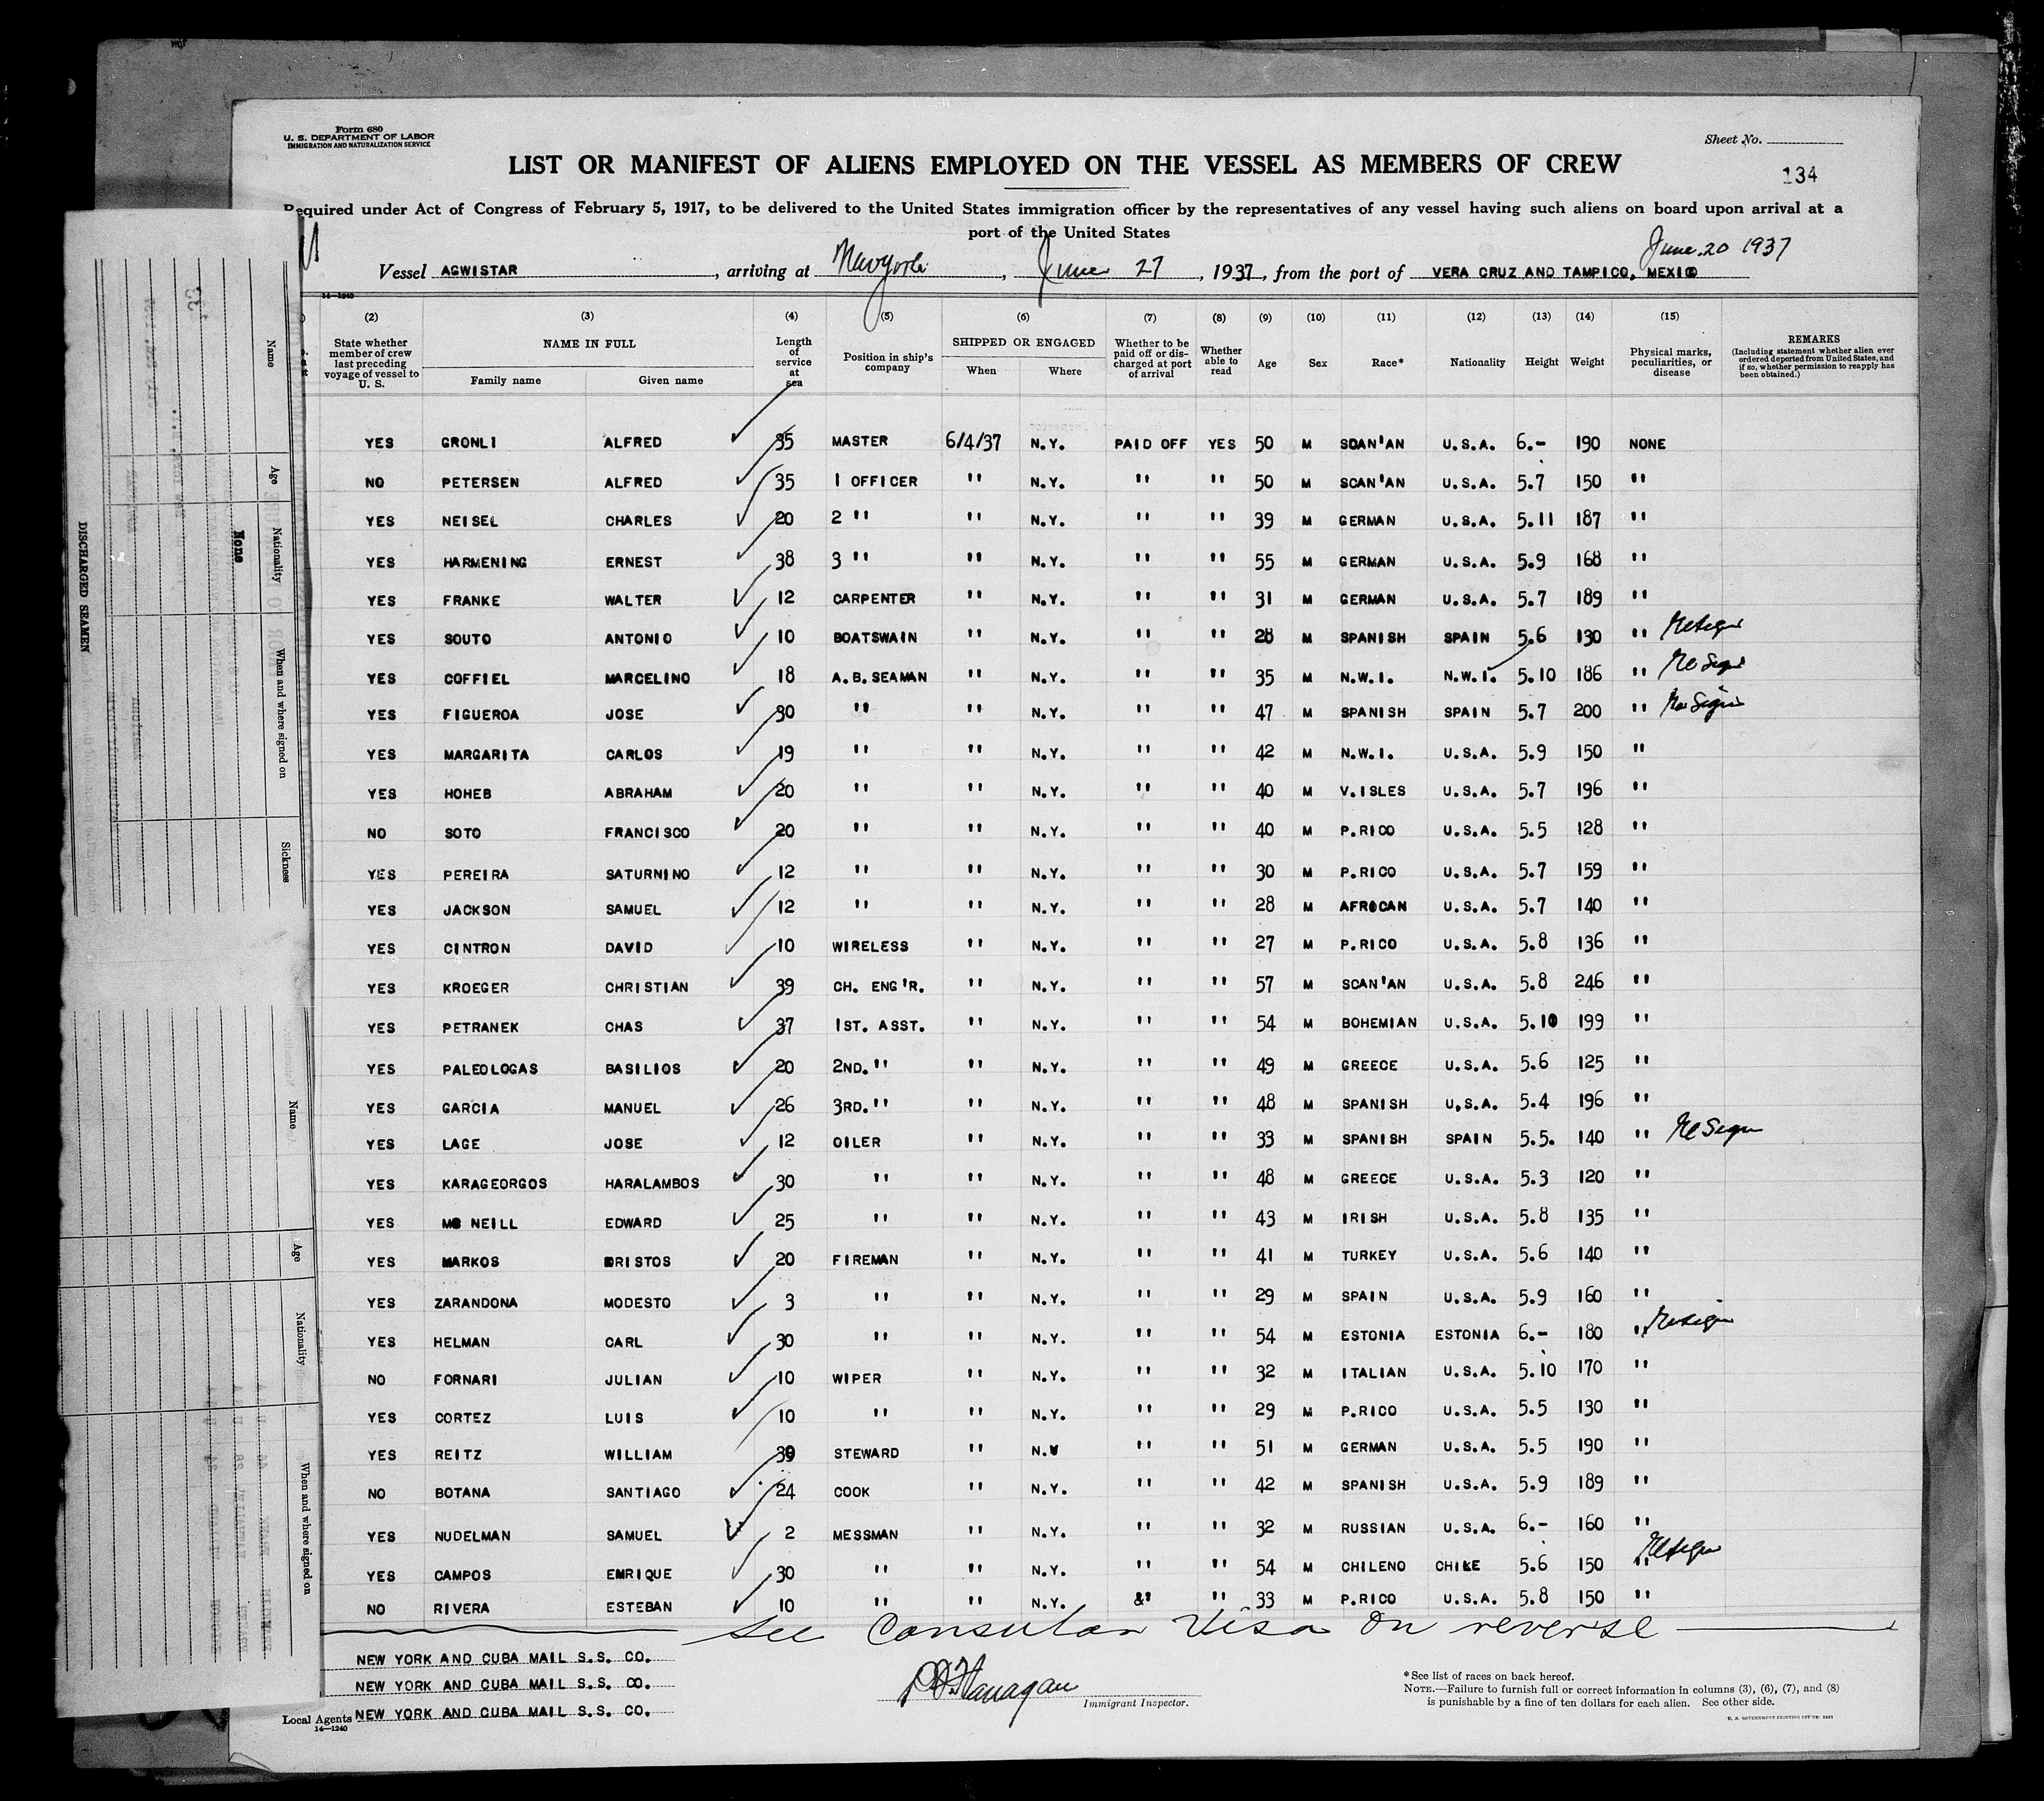 Form 680
U. S. DEPARTMENT OF LABOR
IMMIGRATION AND NATURALIZATION SERVICE
Sheet No.
LIST OR MANIFEST OF ALIENS EMPLOYED ON THE VESSEL AS MEMBERS OF CREW
134
Required under Act of Congress of February 5, 1917, to be delivered to the United States immigration officer by the representatives of any vessel having such aliens on board upon arrival at a
port of the United States
June 20 1937
Vessel AGWISTAR, arriving at New York, June 27, 1937, from the port of VERA CRUZ AND TAMPICO, MEXICO
14—1240
(2) (3) (4) (5) (6) (7) (8) (9) (10) (11) (12) (13) (14) (15)
State whether member of crew last preceding voyage of vessel to U. S.
NAME IN FULL
Family name Given name
Length of service at sea
Position in ship's company
SHIPPED OR ENGAGED
When Where
Whether to be paid off or discharged at port of arrival
Whether able to read
Age
Sex
Race*
Nationality
Height
Weight
Physical marks, peculiarities, or disease
REMARKS
(Including statement whether alien ever ordered deported from United States, and if so, whether permission to reapply has been obtained.)
YES GRONLI ALFRED 35 MASTER 6/4/37 N.Y. PAID OFF YES 50 M SCAN'AN U.S.A. 6.- 190 NONE
NO PETERSEN ALFRED 35 1 OFFICER " N.Y. " " 50 M SCAN'AN U.S.A. 5.7 150 "
YES NEISEL CHARLES 20 2 " " N.Y. " " 39 M GERMAN U.S.A. 5.11 187 "
YES HARMENING ERNEST 38 3 " " N.Y. " " 55 M GERMAN U.S.A. 5.9 168 "
YES FRANKE WALTER 12 CARPENTER " N.Y. " " 31 M GERMAN U.S.A. 5.7 189 "
YES SOUTO ANTONIO 10 BOATSWAIN " N.Y. " " 28 M SPANISH SPAIN 5.6 130 "
YES COFFIEL MARCELINO 18 A.B.SEAMAN " N.Y. " " 35 M N.W.I. N.W.I. 5.10 186 "
YES FIGUEROA JOSE 30 " " N.Y. " " 47 M SPANISH SPAIN 5.7 200 "
YES MARGARITA CARLOS 19 " " N.Y. " " 42 M N.W.I. U.S.A. 5.9 150 "
YES HOHEB ABRAHAM 20 " " N.Y. " " 40 M V.ISLES U.S.A. 5.7 196 "
NO SOTO FRANCISCO 20 " " N.Y. " " 40 M P.RICO U.S.A. 5.5 128 "
YES PEREIRA SATURNINO 12 " " N.Y. " " 30 M P.RICO U.S.A. 5.7 159 "
YES JACKSON SAMUEL 12 " " N.Y. " " 28 M AFRICAN U.S.A. 5.7 140 "
YES CINTRON DAVID 10 WIRELESS " N.Y. " " 27 M P.RICO U.S.A. 5.8 136 "
YES KROEGER CHRISTIAN 39 CH. ENG'R. " N.Y. " " 57 M SCAN'AN U.S.A. 5.8 246 "
YES PETRANEK CHAS 37 1ST. ASST. " N.Y. " " 54 M BOHEMIAN U.S.A. 5.10 199 "
YES PALEOLOGAS BASILIOS 20 2ND." " N.Y. " " 49 M GREECE U.S.A. 5.6 125 "
YES GARCIA MANUEL 26 3RD." " N.Y. " " 48 M SPANISH U.S.A. 5.4 196 "
YES LAGE JOSE 12 OILER " N.Y. " " 33 M SPANISH SPAIN 5.5. 140 "
YES KARAGEORGOS HARALAMBOS 30 " " N.Y. " " 48 M GREECE U.S.A. 5.3 120 "
YES MC NEILL EDWARD 25 " " N.Y. " " 43 M IRISH U.S.A. 5.8 135 "
YES MARKOS DRISTOS 20 FIREMAN " N.Y. " " 41 M TURKEY U.S.A. 5.6 140 "
YES ZARANDONA MODESTO 3 " " N.Y. " " 29 M SPAIN U.S.A. 5.9 160 "
YES HELMAN CARL 30 " " N.Y. " " 54 M ESTONIA ESTONIA 6.- 180 "
NO FORNARI JULIAN 10 WIPER " N.Y. " " 32 M ITALIAN U.S.A. 5.10 170 "
YES CORTEZ LUIS 10 " " N.Y. " " 29 M P.RICO U.S.A. 5.5 130 "
YES REITZ WILLIAM 39 STEWARD " N.Y " " 51 M GERMAN U.S.A. 5.5 190 "
NO BOTANA SANTIAGO 24 COOK " N.Y. " " 42 M SPANISH U.S.A. 5.9 189 "
YES NUDELMAN SAMUEL 2 MESSMAN " N.Y. " " 32 M RUSSIAN U.S.A. 6.- 160 "
YES CAMPOS ENRIQUE 30 " " N.Y. " " 54 M CHILENO CHILE 5.6 150 "
NO RIVERA ESTEBAN 10 " " N.Y. &" " 33 M P.RICO U.S.A. 5.8 150 "
See Consular Visa on reverse
NEW YORK AND CUBA MAIL S.S. CO.
NEW YORK AND CUBA MAIL S.S. CO.
Local Agents NEW YORK AND CUBA MAIL S.S. CO.
14—1240
Flanagan
Immigrant Inspector.
*See list of races on back hereof.
NOTE.—Failure to furnish full or correct information in columns (3), (6), (7), and (8)
is punishable by a fine of ten dollars for each alien. See other side.
DISCHARGED SEAMEN
Name Age Nationality When and where signed on Sickness
None
Name Age Nationality When and where signed on